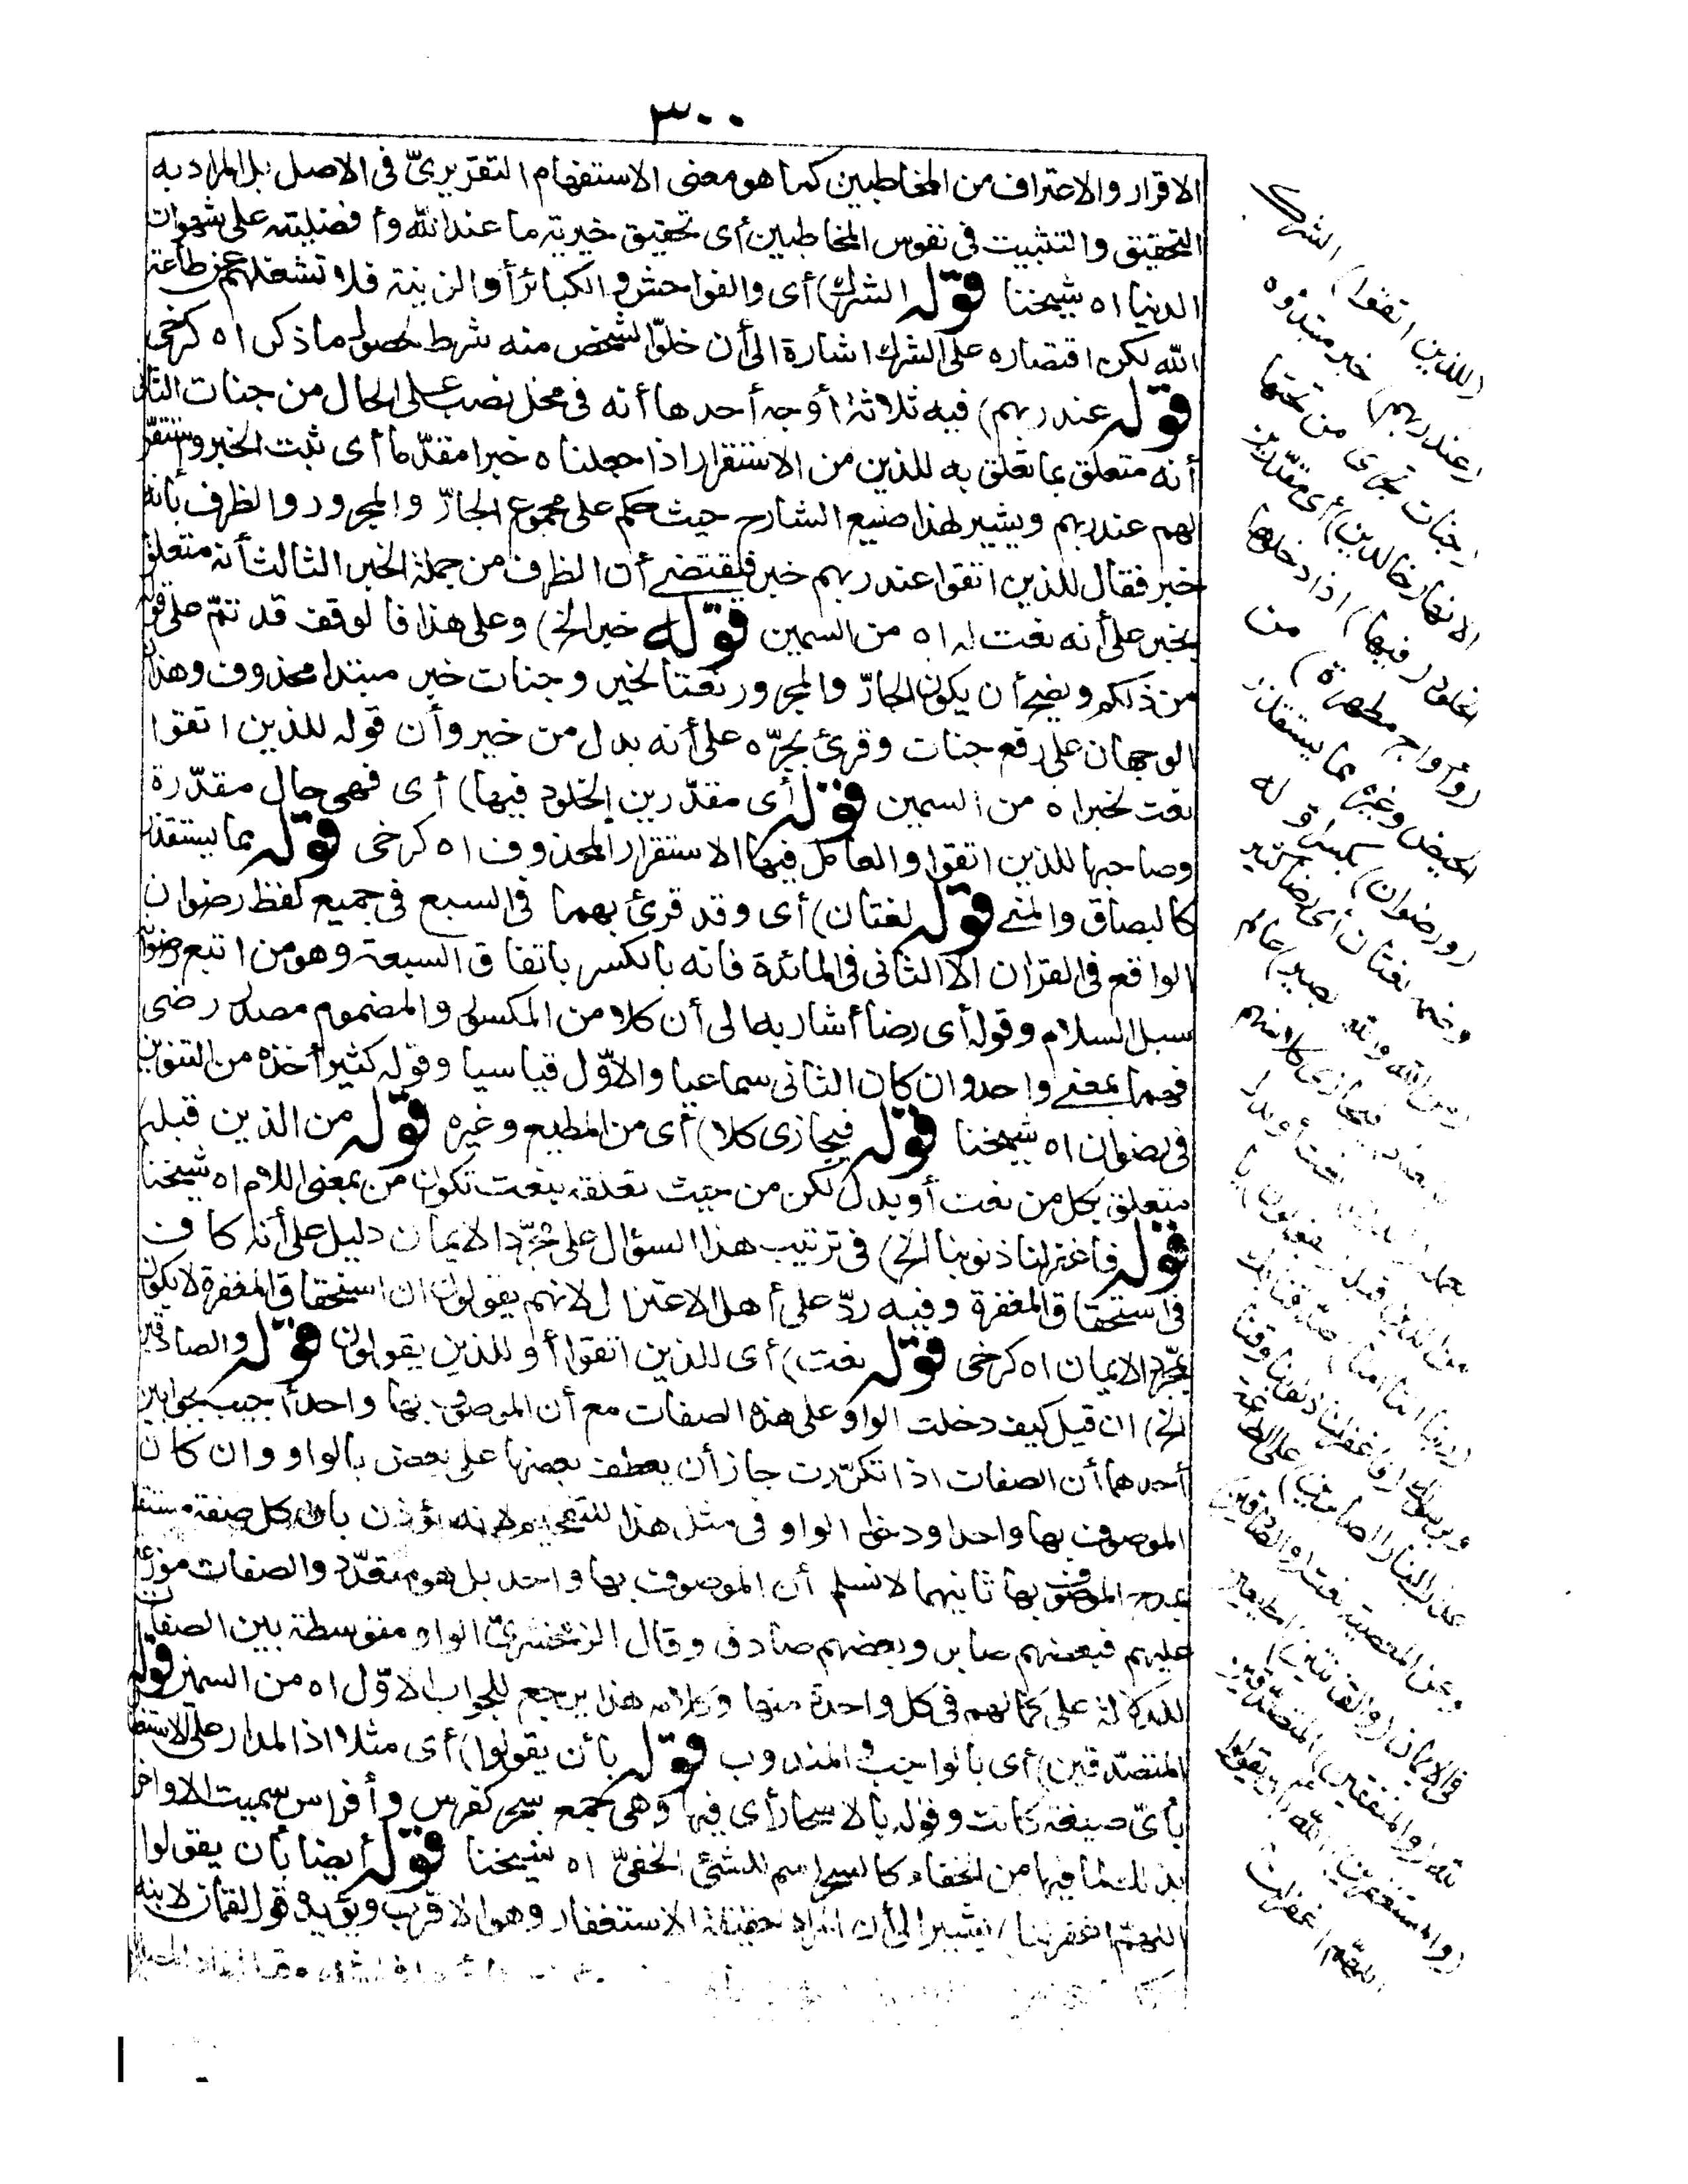 ٣٠٠
الاقرار والاعتراف من المخاطبين كما هو معنى الاستفهام التقريريّ فى الاصل بل المراد به
التحقيق والتثبيت فى نفوس المخاطبين أى تحقيق خيرية ما عند الله وأفضليته على شهوات
الدنيا اه شيخنا قوله الشرك) أى والفواحش والكبائر أو الزينة فلا تشغلهم عن طاعة
الله لكن اقتصاره على الشرك اشارة الى أن خلوّ الشخص منه شرط لحصول ما ذكر اه كرخى
قوله عند ربهم) فيه ثلاثة أوجه أحدها أنه فى محل نصب على الحال من جنات الثانى
أنه متعلق بما تعلق به للذين من الاستقرار اذا جعلناه خبرا مقدّما أى ثبت الخبر واستقرّ
لهم عند ربهم ويشير لهذا صنيع الشارح حيث حكم على مجموع الجارّ والمجرور والظرف بأنه
خبر فقال للذين اتقوا عند ربهم خبر فيقتضى أن الظرف من جملة الخبر الثالث أنه متعلق
بخير على أنه نعت له اه من السمين قوله خبر الخ) وعلى هذا فالوقف قد تمّ على قوله
من ذلكم ويصح أن يكون الجارّ والمجرور نعتا لخير وجنات خبر مبتدا محذوف وهذان
الوجهان على رفع جنات وقرئ بجرّه على أنه بدل من خير وأن قوله للذين اتقوا
نعت لخير اه من السمين قوله أى مقدّرين الخلود فيها) أى فهى حال مقدّرة
وصاحبها للذين اتقوا والعامل فيها الاستقرار المحذوف اه كرخى قوله مما يستقذر
كالبصاق والمنى قوله لغتان) أى وقد قرئ بهما فى السبع فى جميع لفظ رضوان
الواقع فى القرآن الا الثانى فى المائدة فانه بالكسر باتفاق السبعة وهو من اتبع رضوانه
سبل السلام وقوله أى رضا أشار به الى أن كلا من المكسور والمضموم مصدر رضى
فهما بمعنى واحد وان كان الثانى سماعيا والاوّل قياسيا وقوله كثير أخذه من التنوين
فى رضوان اه شيخنا قوله فيجازى كلا) أى من المطيع وغيره قوله من الذين قبله)
متعلق بكل من نعت أو بدل لكن من حيث تعلقه بنعت تكون من بمعنى اللام اه شيخنا
قوله فاغفر لنا ذنوبنا الخ) فى ترتيب هذا السؤال على مجرّد الايمان دليل على أنه كاف
فى استحقاق المغفرة وفيه ردّ على أهل الاعتزال لانهم يقولون ان استحقاق المغفرة لا يكون
بمجرّد الايمان اه كرخى قوله نعت) أى للذين اتقوا أو للذين يقولون قوله والصادقين
الخ) ان قيل كيف دخلت الواو على هذه الصفات مع أن الموصوف بها واحد أجيب بجوابين
أحدهما أن الصفات اذا تكرّرت جاز أن يعطف بعضها على بعض بالواو وان كان
الموصوف بها واحدا ودخول الواو فى مثل هذا للتفخيم لانه يؤذن بأن كل صفة مستقلة
بمدح الموصوف بها ثانيهما لا نسلم أن الموصوف بها واحد بل هو متعدّد والصفات موزعة
عليهم فبعضهم صابر وبعضهم صادق وقال الزمخشرىّ الواو متوسطة بين الصفات
للدلالة على كمالهم فى كل واحدة منها وكلامه هذا يرجع للجواب الاوّل اه من السمين قوله
المتصدّقين) أى بالواجب والمندوب قوله بأن يقولوا) أى مثلا اذ المدار على الاستغفار
بأىّ صيغة كانت وقوله بالاسحار أى فيها وهى جمع سحر كفرس وأفراس سميت الاواخر
بذلك لما فيها من الخفاء كالسحر اسم للشئ الخفىّ اه شيخنا قوله أيضا بأن يقولوا
اللهمّ اغفر لنا) يشير الى أن المراد حقيقة الاستغفار وهو الاقرب ويؤيده قول لقمان لابنه
(للذين اتقوا) الشرك
(عند ربهم) خبر مبتدؤه
(جنات تجرى من تحتها
الانهار خالدين) أى مقدّرين
الخلود (فيها) اذا دخلوها
(وأزواج مطهرة) من
الحيض وغيره مما يستقذر
(ورضوان) بكسر أوّله
وضمه لغتان أى رضا كثير
(من الله والله بصير) عالم
فيجازى كلا منهم
نعت أو بدل
من الذين قبله (يقولون) يا
(ربنا اننا آمنا) صدّقنا بك
وبرسولك (فاغفر لنا ذنوبنا وقنا
عذاب النار الصابرين) على الطاعة
وعن المعصية نعت (والصادقين)
فى الايمان (والقانتين) المطيعين
لله (والمنفقين) المتصدّقين
(والمستغفرين) الله بأن يقولوا
اللهمّ اغفر لنا